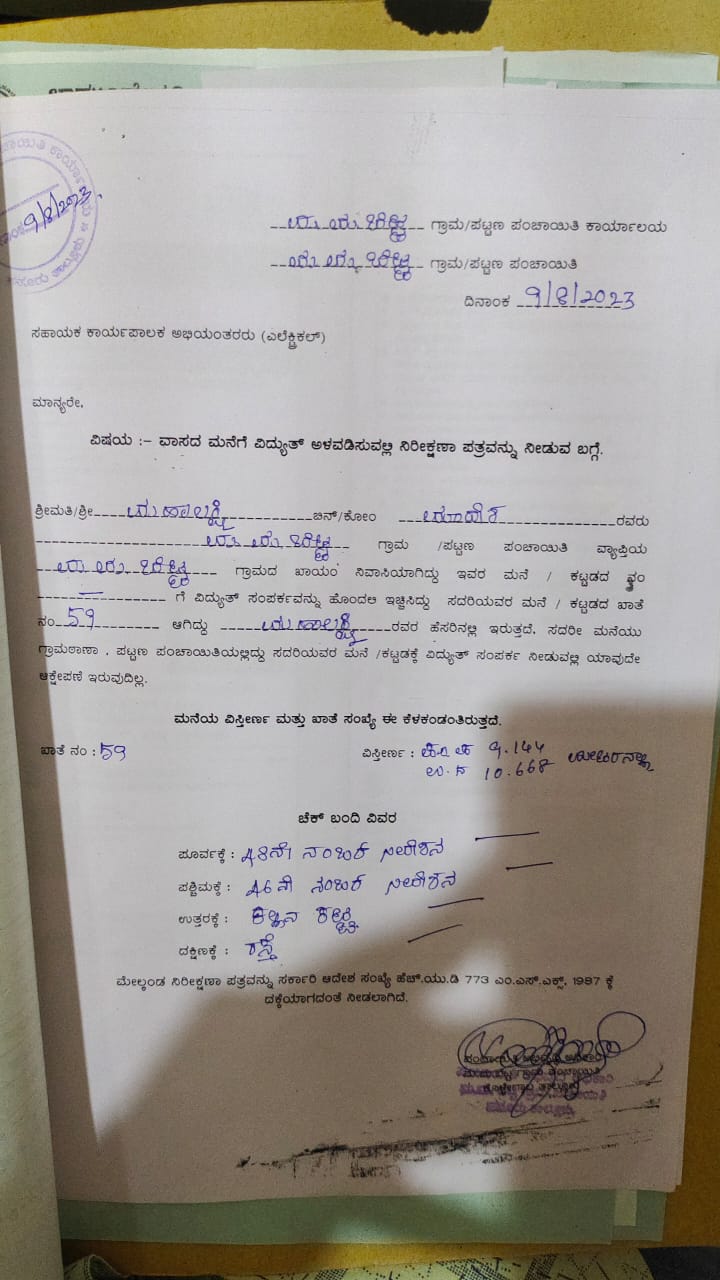 9/8/2023
ಗ್ರಾಮ/ಪಟ್ಟಣ ಪಂಚಾಯಿತಿ ಕಾರ್ಯಾಲಯ
ಗ್ರಾಮ/ಪಟ್ಟಣ ಪಂಚಾಯಿತಿ
ದಿನಾಂಕ 9/8/2023
ಸಹಾಯಕ ಕಾರ್ಯಪಾಲಕ ಅಭಿಯಂತರರು (ಎಲೆಕ್ಟ್ರಿಕಲ್)
ಮಾನ್ಯರೇ,
ವಿಷಯ :- ವಾಸದ ಮನೆಗೆ ವಿದ್ಯುತ್ ಅಳವಡಿಸುವಲ್ಲಿ ನಿರೀಕ್ಷಣಾ ಪತ್ರವನ್ನು ನೀಡುವ ಬಗ್ಗೆ.
ಶ್ರೀಮತಿ/ಶ್ರೀ ಮಹಾಲಕ್ಷ್ಮಿ ಬಿನ್/ಕೋಂ ಮಾದೇಶ ರವರು
ಗ್ರಾಮ /ಪಟ್ಟಣ ಪಂಚಾಯಿತಿ ವ್ಯಾಪ್ತಿಯ
ಗ್ರಾಮದ ಖಾಯಂ ನಿವಾಸಿಯಾಗಿದ್ದು ಇವರ ಮನೆ / ಕಟ್ಟಡದ ನಂ
ಗೆ ವಿದ್ಯುತ್ ಸಂಪರ್ಕವನ್ನು ಹೊಂದಲ ಇಚ್ಚಿಸಿದ್ದು ಸದರಿಯವರ ಮನೆ / ಕಟ್ಟಡದ ಖಾತೆ
ನಂ 59 ಆಗಿದ್ದು ಮಹಾಲಕ್ಷ್ಮಿ ರವರ ಹೆಸರಿನಲ್ಲಿ ಇರುತ್ತದೆ. ಸದರೀ ಮನೆಯು
ಗ್ರಾಮಠಾಣಾ . ಪಟ್ಟಣ ಪಂಚಾಯಿತಿಯಲ್ಲಿದ್ದು ಸದರಿಯವರ ಮನೆ /ಕಟ್ಟಡಕ್ಕೆ ವಿದ್ಯುತ್ ಸಂಪರ್ಕ ನೀಡುವಲ್ಲಿ ಯಾವುದೇ
ಆಕ್ಷೇಪಣೆ ಇರುವುದಿಲ್ಲ.
ಮನೆಯ ವಿಸ್ತೀರ್ಣ ಮತ್ತು ಖಾತೆ ಸಂಖ್ಯೆ ಈ ಕೆಳಕಂಡಂತಿರುತ್ತದೆ.
ಖಾತೆ ನಂ : 59 ವಿಸ್ತೀರ್ಣ : 9.144
ಉ.ದ 10.668
ಚೆಕ್ ಬಂದಿ ವಿವರ
ಪೂರ್ವಕ್ಕೆ : 48ನೇ ನಂಬರ್ ನಿವೇಶನ
ಪಶ್ಚಿಮಕ್ಕೆ : 46ನೇ ನಂಬರ್ ನಿವೇಶನ
ಉತ್ತರಕ್ಕೆ :
ದಕ್ಷಿಣಕ್ಕೆ : ರಸ್ತೆ
ಮೇಲ್ಕಂಡ ನಿರೀಕ್ಷಣಾ ಪತ್ರವನ್ನು ಸರ್ಕಾರಿ ಆದೇಶ ಸಂಖ್ಯೆ ಹೆಚ್.ಯು.ಡಿ 773 ಎಂ.ಎಸ್.ಎಕ್ಸ್. 1987 ಕ್ಕೆ
ದಕ್ಕೆಯಾಗದಂತೆ ನೀಡಲಾಗಿದೆ.